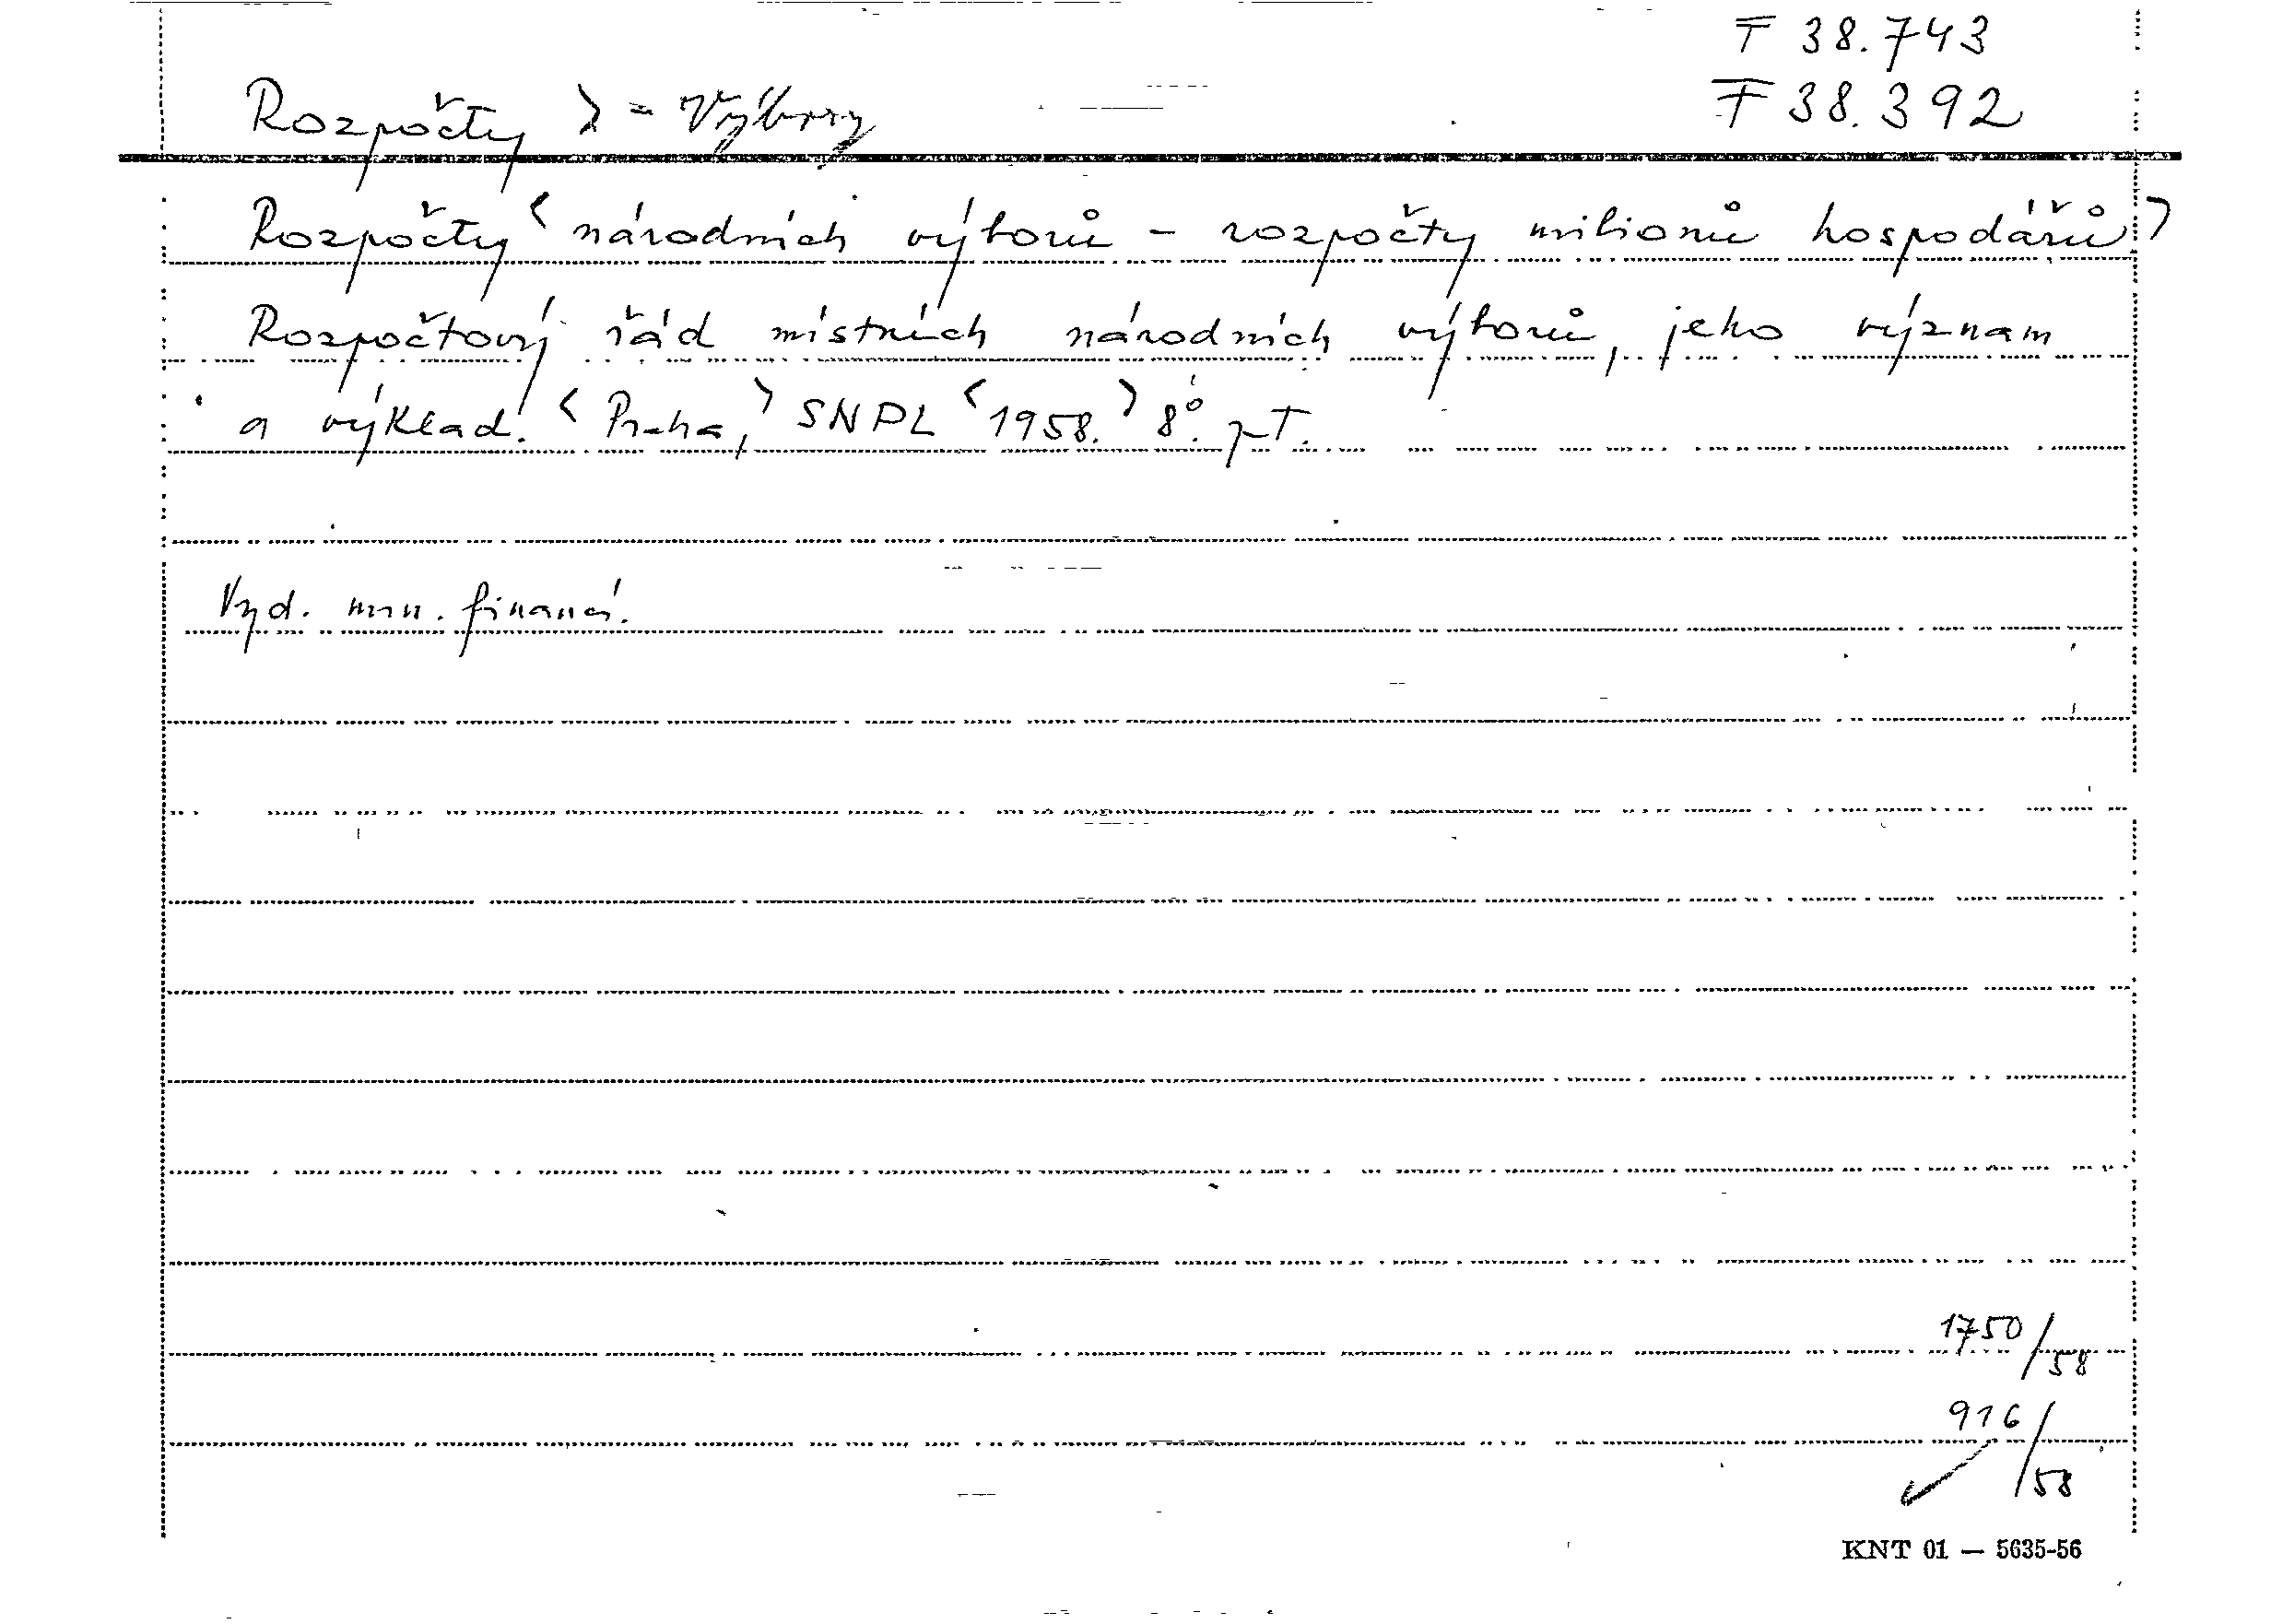 F 38.743
F 38.392
Rozpočty > = Výbory
Rozpočty < národních výborů – rozpočty milionů hospodářů >
Rozpočtový řád místních národních výborů, jeho význam
a výklad. < Praha, > SNPL < 1958. > 8°. pT.
Vyd. min. financí.
1750/58
916/58
KNT 01 — 5635-56